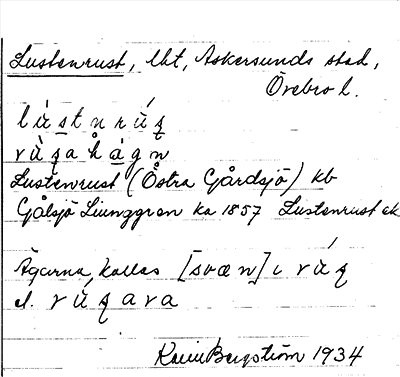 Lustenrust, lht, Askersunds stad,
Örebro l.
lùstnrúʂ
rùʂahågn
Lustenrust (Östra Gårdsjö) kb
Gålsjö Ljunggren ka 1857 Lustenrust ek
Ägarna kallas [svæn] i rúʂ
el. rúʂara
Karin Bergström 1934